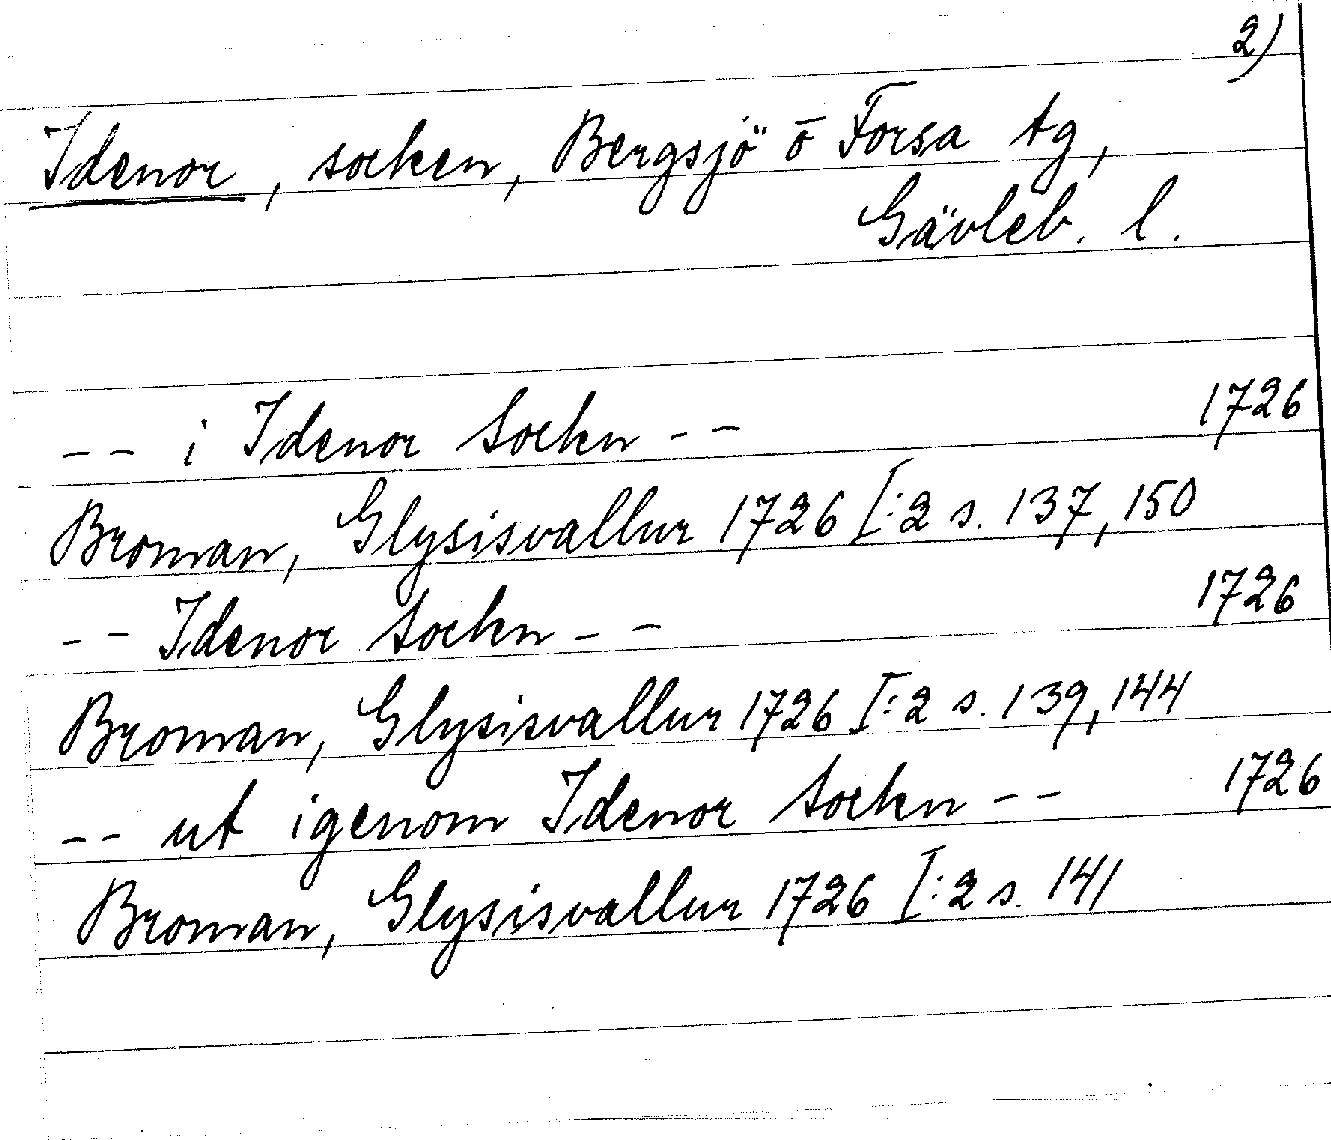 2)
Idenor, socken, Bergsjö o Forsa tg,
Gävleb. l.
-- i Idenor Sockn -- 1726
Broman, Glysisvallur 1726 I:2 s. 137, 150
-- Idenor Sockn -- 1726
Broman, Glysisvallur 1726 I:2 s. 139, 144
-- ut igenom Idenor Sockn -- 1726
Broman, Glysisvallur 1726 I:2 s. 141